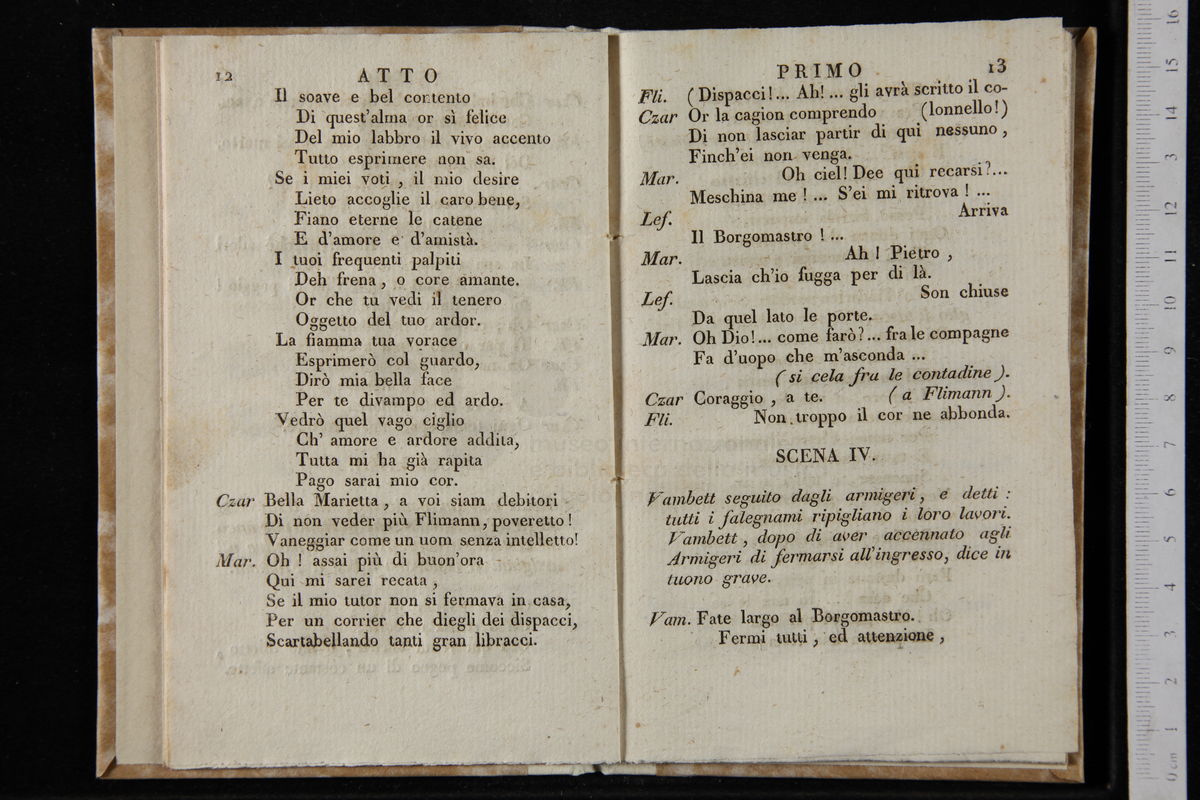 12 ATTO
Il soave e bel contento
Di quest'alma or sì felice
Del mio labbro il vivo accento
Tutto esprimere non sa.
Se i miei voti , il mio desire
Lieto accoglie il caro bene,
Fiano eterne le catene
E d'amore e d'amistà.
I tuoi frequenti palpiti
Deh frena , o core amante.
Or che tu vedi il tenero
Oggetto del tuo ardor.
La fiamma tua vorace
Esprimerò col guardo,
Dirò mia bella face
Per te divampo ed ardo.
Vedrò quel vago ciglio
Ch' amore e ardore addita,
Tutta mi ha già rapita
Pago sarai mio cor.
Czar Bella Marietta , a voi siam debitori
Di non veder più Flimann, poveretto !
Vaneggiar come un uom senza intelletto!
Mar. Oh ! assai più di buon'ora
Qui mi sarei recata ,
Se il mio tutor non si fermava in casa,
Per un corrier che diegli dei dispacci,
Scartabellando tanti gran libracci.
PRIMO 13
Fli. ( Dispacci!... Ah! ... gli avrà scritto il co-
Czar Or la cagion comprendo (lonnello!)
Di non lasciar partir di qui nessuno ,
Finch'ei non venga.
Mar. Oh ciel! Dee qui recarsi?...
Meschina me ! ... S'ei mi ritrova ! ...
Lef. Arriva
Il Borgomastro ! ...
Mar. Ah ! Pietro ,
Lascia ch'io fugga per di là.
Lef. Son chiuse
Da quel lato le porte.
Mar. Oh Dio!... come farò?... fra le compagne
Fa d'uopo che m'asconda ...
( si cela fra le contadine ).
Czar Coraggio , a te. ( a Flimann ).
Fli. Non troppo il cor ne abbonda.
SCENA IV.
Vambett seguito dagli armigeri, e detti :
tutti i falegnami ripigliano i loro lavori.
Vambett , dopo di aver accennato agli
Armigeri di fermarsi all'ingresso, dice in
tuono grave.
Vam. Fate largo al Borgomastro.
Fermi tutti , ed attenzione ,
0 cm 1 2 3 4 5 6 7 8 9 10 11 12 13 14 15 16